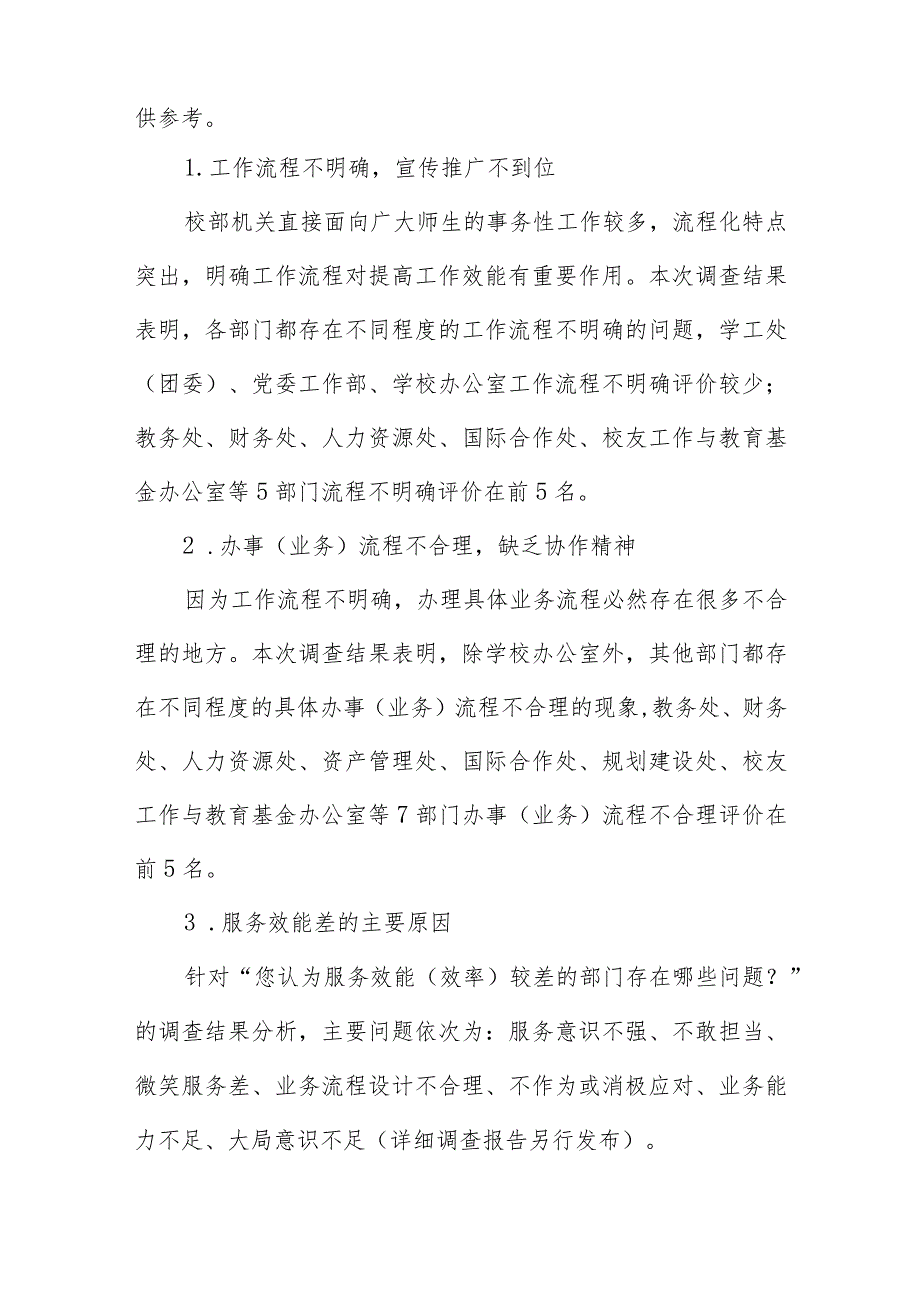 供参考。
1.工作流程不明确，宣传推广不到位
校部机关直接面向广大师生的事务性工作较多，流程化特点
突出，明确工作流程对提高工作效能有重要作用。本次调查结果
表明，各部门都存在不同程度的工作流程不明确的问题，学工处
（团委）、党委工作部、学校办公室工作流程不明确评价较少；
教务处、财务处、人力资源处、国际合作处、校友工作与教育基
金办公室等5部门流程不明确评价在前5名。
2 .办事（业务）流程不合理，缺乏协作精神
因为工作流程不明确，办理具体业务流程必然存在很多不合
理的地方。本次调查结果表明，除学校办公室外，其他部门都存
在不同程度的具体办事（业务）流程不合理的现象,教务处、财务
处、人力资源处、资产管理处、国际合作处、规划建设处、校友
工作与教育基金办公室等7部门办事（业务）流程不合理评价在
前5名。
3 .服务效能差的主要原因
针对“您认为服务效能（效率）较差的部门存在哪些问题？”
的调查结果分析，主要问题依次为：服务意识不强、不敢担当、
微笑服务差、业务流程设计不合理、不作为或消极应对、业务能
力不足、大局意识不足（详细调查报告另行发布）。